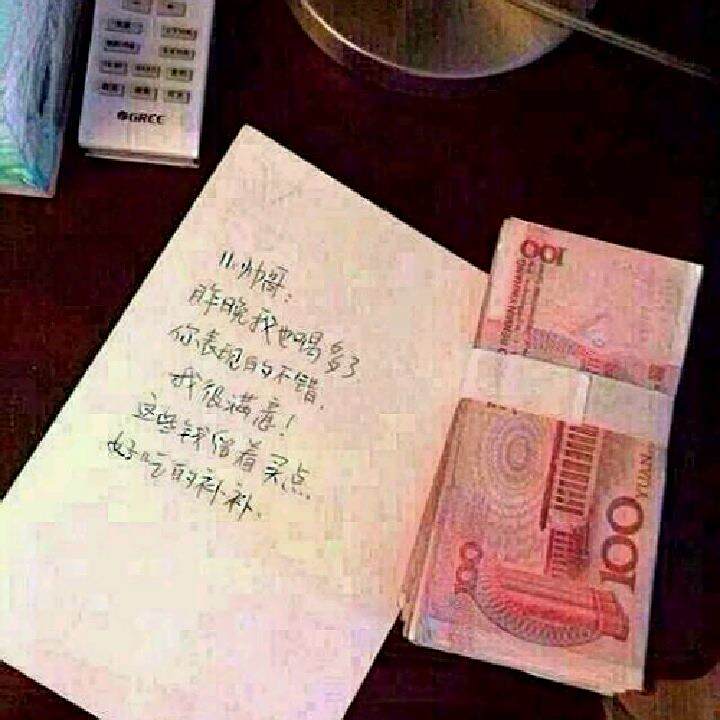 GREE
小帅哥:
昨晚我也喝多了
你表现的不错,
我很满意!
这些钱留着买点
好吃的补补.
100
100
100
YUAN